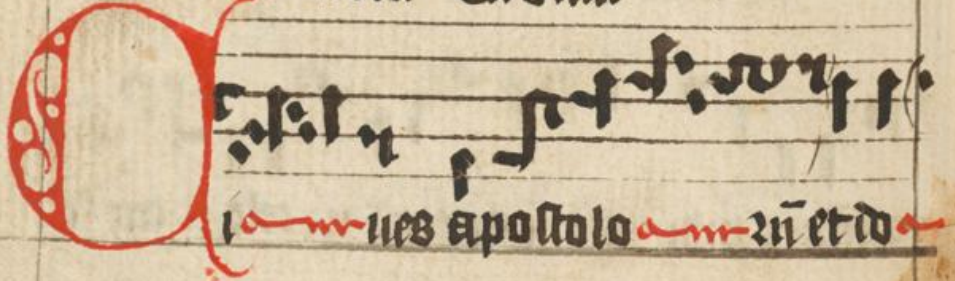 Ci ues apostolo rū et do